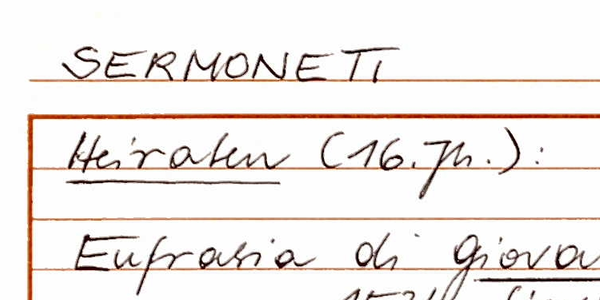 SERMONETI
Heiraten (16. Jh.):
Eufrasia di